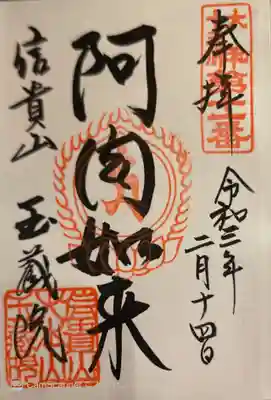 奉拝
令和三年
二月十四日
阿閦如来
信貴山 玉蔵院